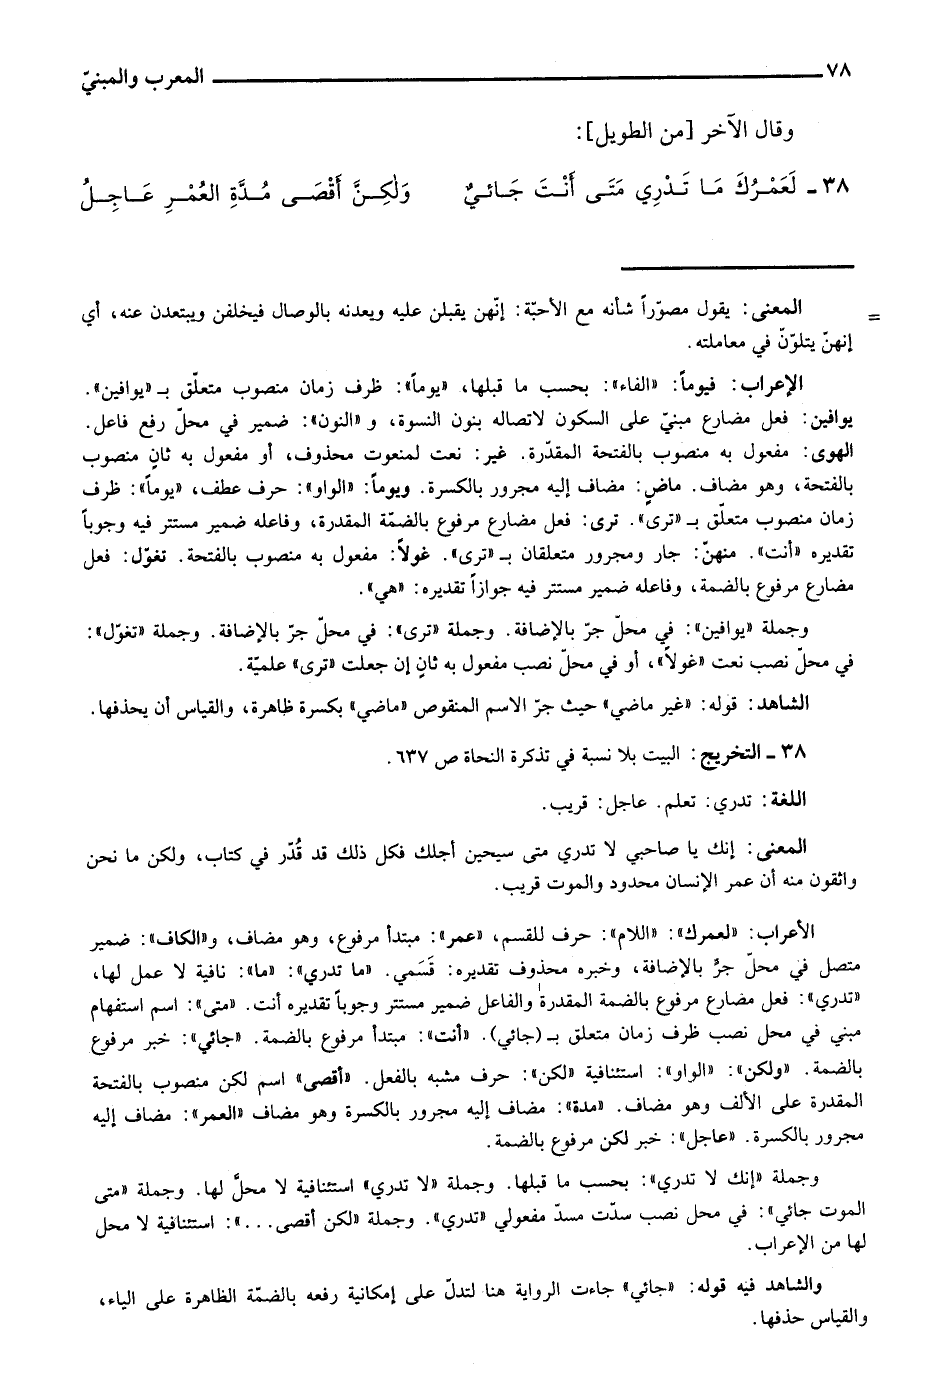 ٧٨ المعرب والمبنيّ
وقال الآخر [من الطويل]:
٣٨ ـ لَعَمْرُكَ مَا تَدْرِي مَتَى أَنْتَ جَائِيٌ وَلٰكِنَّ أَقْصَى مُدَّةِ العُمْرِ عَاجِلُ
= المعنى: يقول مصوّراً شأنه مع الأحبّة: إنّهن يقبلن عليه ويعدنه بالوصال فيخلفن ويبتعدن عنه، أي
إنهنّ يتلوّنّ في معاملته.
الإعراب: فيوماً: «الفاء»: بحسب ما قبلها، «يوماً»: ظرف زمان منصوب متعلّق بـ «يوافين».
يوافين: فعل مضارع مبنيّ على السكون لاتصاله بنون النسوة، و «النون»: ضمير في محلّ رفع فاعل.
الهوى: مفعول به منصوب بالفتحة المقدّرة. غير: نعت لمنعوت محذوف، أو مفعول به ثانٍ منصوب
بالفتحة، وهو مضاف. ماضٍ: مضاف إليه مجرور بالكسرة. ويوماً: «الواو»: حرف عطف، «يوماً»: ظرف
زمان منصوب متعلّق بـ «ترى». ترى: فعل مضارع مرفوع بالضمّة المقدرة، وفاعله ضمير مستتر فيه وجوباً
تقديره «أنت». منهنّ: جار ومجرور متعلقان بـ «ترى». غولاً: مفعول به منصوب بالفتحة. تغوّل: فعل
مضارع مرفوع بالضمة، وفاعله ضمير مستتر فيه جوازاً تقديره: «هي».
وجملة «يوافين»: في محلّ جرّ بالإضافة. وجملة «ترى»: في محلّ جرّ بالإضافة. وجملة «تغوّل»:
في محلّ نصب نعت «غولاً»، أو في محلّ نصب مفعول به ثانٍ إن جعلت «ترى» علميّة.
الشاهد: قوله: «غير ماضي» حيث جرّ الاسم المنقوص «ماضي» بكسرة ظاهرة، والقياس أن يحذفها.
٣٨ ـ التخريج: البيت بلا نسبة في تذكرة النحاة ص ٦٣٧.
اللغة: تدري: تعلم. عاجل: قريب.
المعنى: إنك يا صاحبي لا تدري متى سيحين أجلك فكل ذلك قد قُدّر في كتاب، ولكن ما نحن
واثقون منه أن عمر الإنسان محدود والموت قريب.
الأعراب: «لعمرك»: «اللام»: حرف للقسم، «عمر»: مبتدأ مرفوع، وهو مضاف، و«الكاف»: ضمير
متصل في محلّ جرٍّ بالإضافة، وخبره محذوف تقديره: قَسَمي. «ما تدري»: «ما»: نافية لا عمل لها،
«تدري»: فعل مضارع مرفوع بالضمة المقدرة والفاعل ضمير مستتر وجوباً تقديره أنت. «متى»: اسم استفهام
مبني في محل نصب ظرف زمان متعلق بـ (جائي). «أنت»: مبتدأ مرفوع بالضمة. «جائي»: خبر مرفوع
بالضمة. «ولكن»: «الواو»: استئنافية «لكن»: حرف مشبه بالفعل. «أقصى» اسم لكن منصوب بالفتحة
المقدرة على الألف وهو مضاف. «مدة»: مضاف إليه مجرور بالكسرة وهو مضاف «العمر»: مضاف إليه
مجرور بالكسرة. «عاجل»: خبر لكن مرفوع بالضمة.
وجملة «إنك لا تدري»: بحسب ما قبلها. وجملة «لا تدري» استئنافية لا محلّ لها. وجملة «متى
الموت جائي»: في محل نصب سدّت مسدّ مفعولي «تدري». وجملة «لكن أقصى...»: استئنافية لا محل
لها من الإعراب.
والشاهد فيه قوله: «جائي» جاءت الرواية هنا لتدلّ على إمكانية رفعه بالضمّة الظاهرة على الياء،
والقياس حذفها.